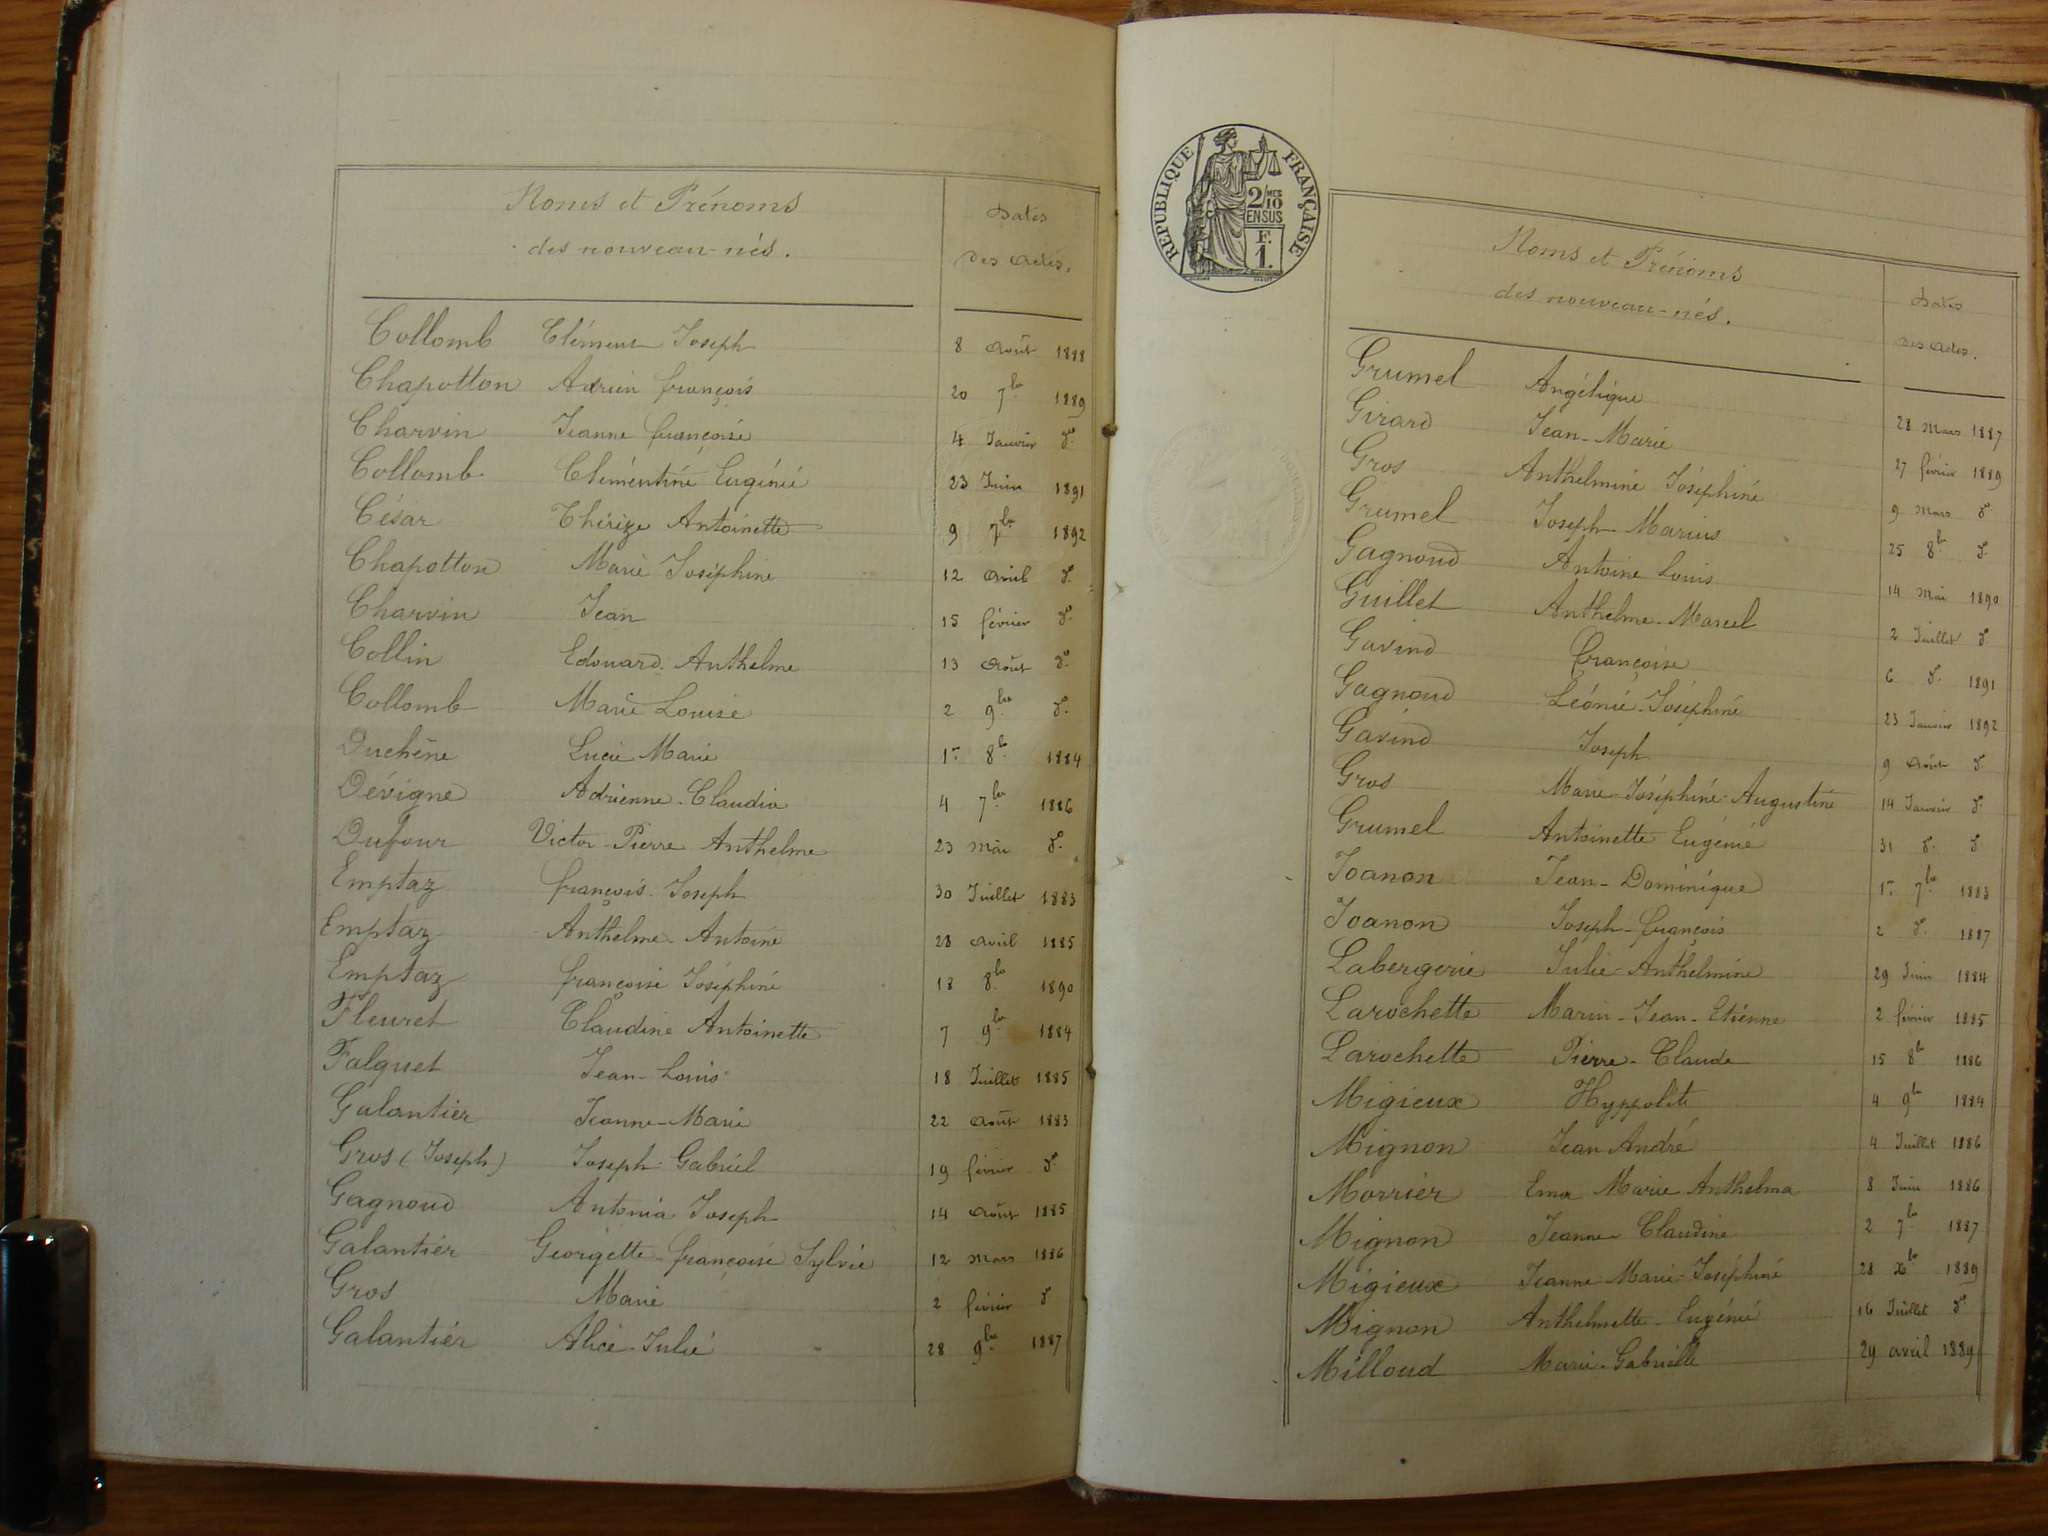 Noms et Prénoms
des nouveau-nés.
Dates
des actes.
Collomb Clément Joseph 8 Août 1888
Chapotton Adrien françois 20 7bre 1889
Charvin Jeanne françoise 4 Janvier do
Collomb Clémentine Eugénie 23 Juin 1891
César Thérèze Antoinette 9 7bre 1892
Chapotton Marie Joséphine 12 Avril do
Charvin Jean 15 février do
Collin Edouard Anthelme 13 Août do
Collomb Marie Louise 2 9bre do
Duchêne Lucie Marie 1er 8bre 1884
Dévigne Adrienne-Claudia 4 7bre 1886
Dufour Victor-Pierre Anthelme 23 Mai do
Emptaz françois-Joseph 30 Juillet 1883
Emptaz Anthelme-Antoine 28 Avril 1885
Emptaz françoise Joséphine 18 8bre 1890
Fleuret Claudine Antoinette 7 9bre 1884
Falquet Jean-Louis 18 Juillet 1885
Galantier Jeanne-Marie 22 Août 1883
Gros (Joseph) Joseph-Gabriel 19 février do
Gagnoud Antonia Joseph 14 Août 1885
Galantier Georgette-françoise Sylvie 12 Mars 1886
Gros Marie 2 février do
Galantier Alice-Julie 28 9bre 1887
REPUBLIQUE FRANÇAISE
2/10 MES
EN SUS
F.
1.
Noms et Prénoms
des nouveau-nés.
Dates
des actes.
Grumel Angélique 28 Mars 1887
Girard Jean-Marie 27 février 1889
Gros Anthelmine Joséphine 9 Mars do
Grumel Joseph-Marius 25 8bre do
Gagnoud Antoine Louis 14 Mai 1890
Guillet Anthelme-Marcel 2 Juillet do
Gavind françoise 6 do 1891
Gagnoud Léonie-Joséphine 23 Janvier 1892
Gavind Joseph 9 Août do
Gros Marie-Joséphine-Augustine 14 Janvier do
Grumel Antoinette Eugénie 31 do do
Joanon Jean-Dominique 1er 7bre 1883
Joanon Joseph-françois 2 do 1887
Labergerie Julie-Anthelmine 29 Juin 1884
Larochette Marin-Jean-Etienne 2 février 1885
Larochette Pierre-Claude 15 8bre 1886
Migieux Hyppolite 4 9bre 1884
Mignon Jean André 4 Juillet 1886
Morrier Ema Marie Anthelma 8 Juin 1886
Mignon Jeanne-Claudine 2 7bre 1887
Migieux Jeanne Marie-Joséphine 28 Xbre 1889
Mignon Anthelmette-Eugénie 16 Juillet do
Milloud Marie-Gabrielle 29 avril 1889